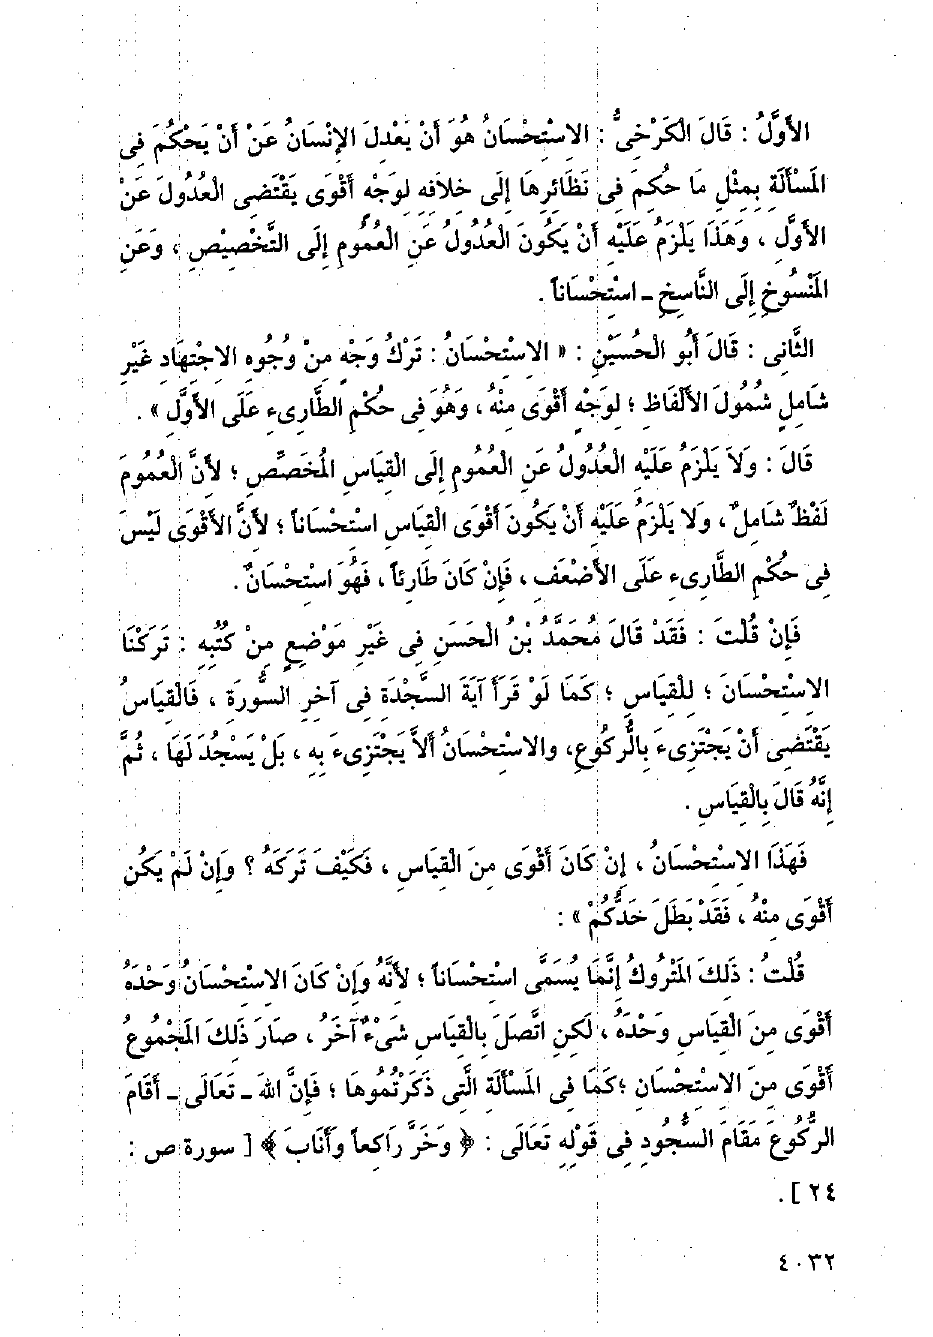 الأَوَّلُ : قَالَ الْكَرْخِىُّ : الاسْتِحْسَانُ هُوَ أَنْ يَعْدِلَ الإِنْسَانُ عَنْ أَنْ يَحْكُمَ فِى
المَسْأَلَةِ بِمِثْلِ مَا حُكِمَ فِى نَظَائِرِهَا إِلَى خِلَافِهِ لِوَجْهٍ أَقْوَى يَقْتَضِى الْعُدُولَ عَنْ
الأَوَّلِ ، وَهَذَا يَلْزَمُ عَلَيْهِ أَنْ يَكُونَ الْعُدُولُ عَنِ الْعُمُومِ إِلَى التَّخْصِيْصِ ، وَعَنِ
المَنْسُوخِ إِلَى النَّاسِخِ ـ اسْتِحْسَاناً .
الثَّانِى : قَالَ أَبُو الْحُسَيْنِ : « الاسْتِحْسَانُ : تَرْكُ وَجْهٍ مِنْ وُجُوهِ الاجْتِهَادِ غَيْرِ
شَامِلٍ شُمُولَ الأَلْفَاظِ ؛ لِوَجْهٍ أَقْوَى مِنْهُ ، وَهُوَ فِى حُكْمِ الطَّارِىءِ عَلَى الأَوَّلِ » .
قَالَ : وَلاَ يَلْزَمُ عَلَيْهِ الْعُدُولُ عَنِ الْعُمُومِ إِلَى الْقِيَاسِ المُخَصِّصِ ؛ لأَنَّ الْعُمُومَ
لَفْظٌ شَامِلٌ ، وَلا يَلْزَمُ عَلَيْهِ أَنْ يَكُونَ أَقْوَى الْقِيَاسِ اسْتِحْسَاناً ؛ لأَنَّ الأَقْوَى لَيْسَ
فِى حُكْمِ الطَّارِىءِ عَلَى الأَضْعَفِ ، فَإِنْ كَانَ طَارِئاً ، فَهُوَ اسْتِحْسَانٌ .
فَإِنْ قُلْتَ : فَقَدْ قَالَ مُحَمَّدُ بْنُ الْحَسَنِ فِى غَيْرِ مَوْضِعٍ مِنْ كُتُبِهِ : تَرَكْنَا
الاسْتِحْسَانَ ؛ لِلْقِيَاسِ ؛ كَمَا لَوْ قَرَأَ آيَةَ السَّجْدَةِ فِى آخِرِ السُّورَةِ ، فَالْقِيَاسُ
يَقْتَضِى أَنْ يَجْتَزِىءَ بِالرُّكُوعِ، والاسْتِحْسَانُ أَلاَّ يَجْتَزِىءَ بِهِ ، بَلْ يَسْجُدَ لَهَا ، ثُمَّ
إِنَّهُ قَالَ بِالْقِيَاسِ .
فَهَذَا الاسْتِحْسَانُ ، إِنْ كَانَ أَقْوَى مِنَ الْقِيَاسِ ، فَكَيْفَ تَرَكَهُ ؟ وَإِنْ لَمْ يَكُن
أَقْوَى مِنْهُ ، فَقَدْ بَطَلَ حَدُّكُمْ » :
قُلْتُ : ذَلِكَ المَتْرُوكُ إِنَّمَا يُسَمَّى اسْتِحْسَاناً ؛ لأَنَّهُ وَإِنْ كَانَ الاسْتِحْسَانُ وَحْدَهُ
أَقْوَى مِنَ الْقِيَاسِ وَحْدَهُ ، لَكِنِ اتَّصَلَ بِالْقِيَاسِ شَىْءٌ آخَرُ ، صَارَ ذَلِكَ المَجْمُوعُ
أَقْوَى مِنَ الاسْتِحْسَانِ ؛ كَمَا فِى المَسْأَلَةِ الَّتِى ذَكَرْتُمُوهَا ؛ فَإِنَّ اللهَ ـ تَعَالَى ـ أَقَامَ
الرُّكُوعَ مَقَامَ السُّجُودِ فِى قَوْلِهِ تَعَالَى : ﴿ وَخَرَّ رَاكِعاً وَأَنَابَ ﴾ [ سورة ص :
٢٤ ] .
٤٠٣٢